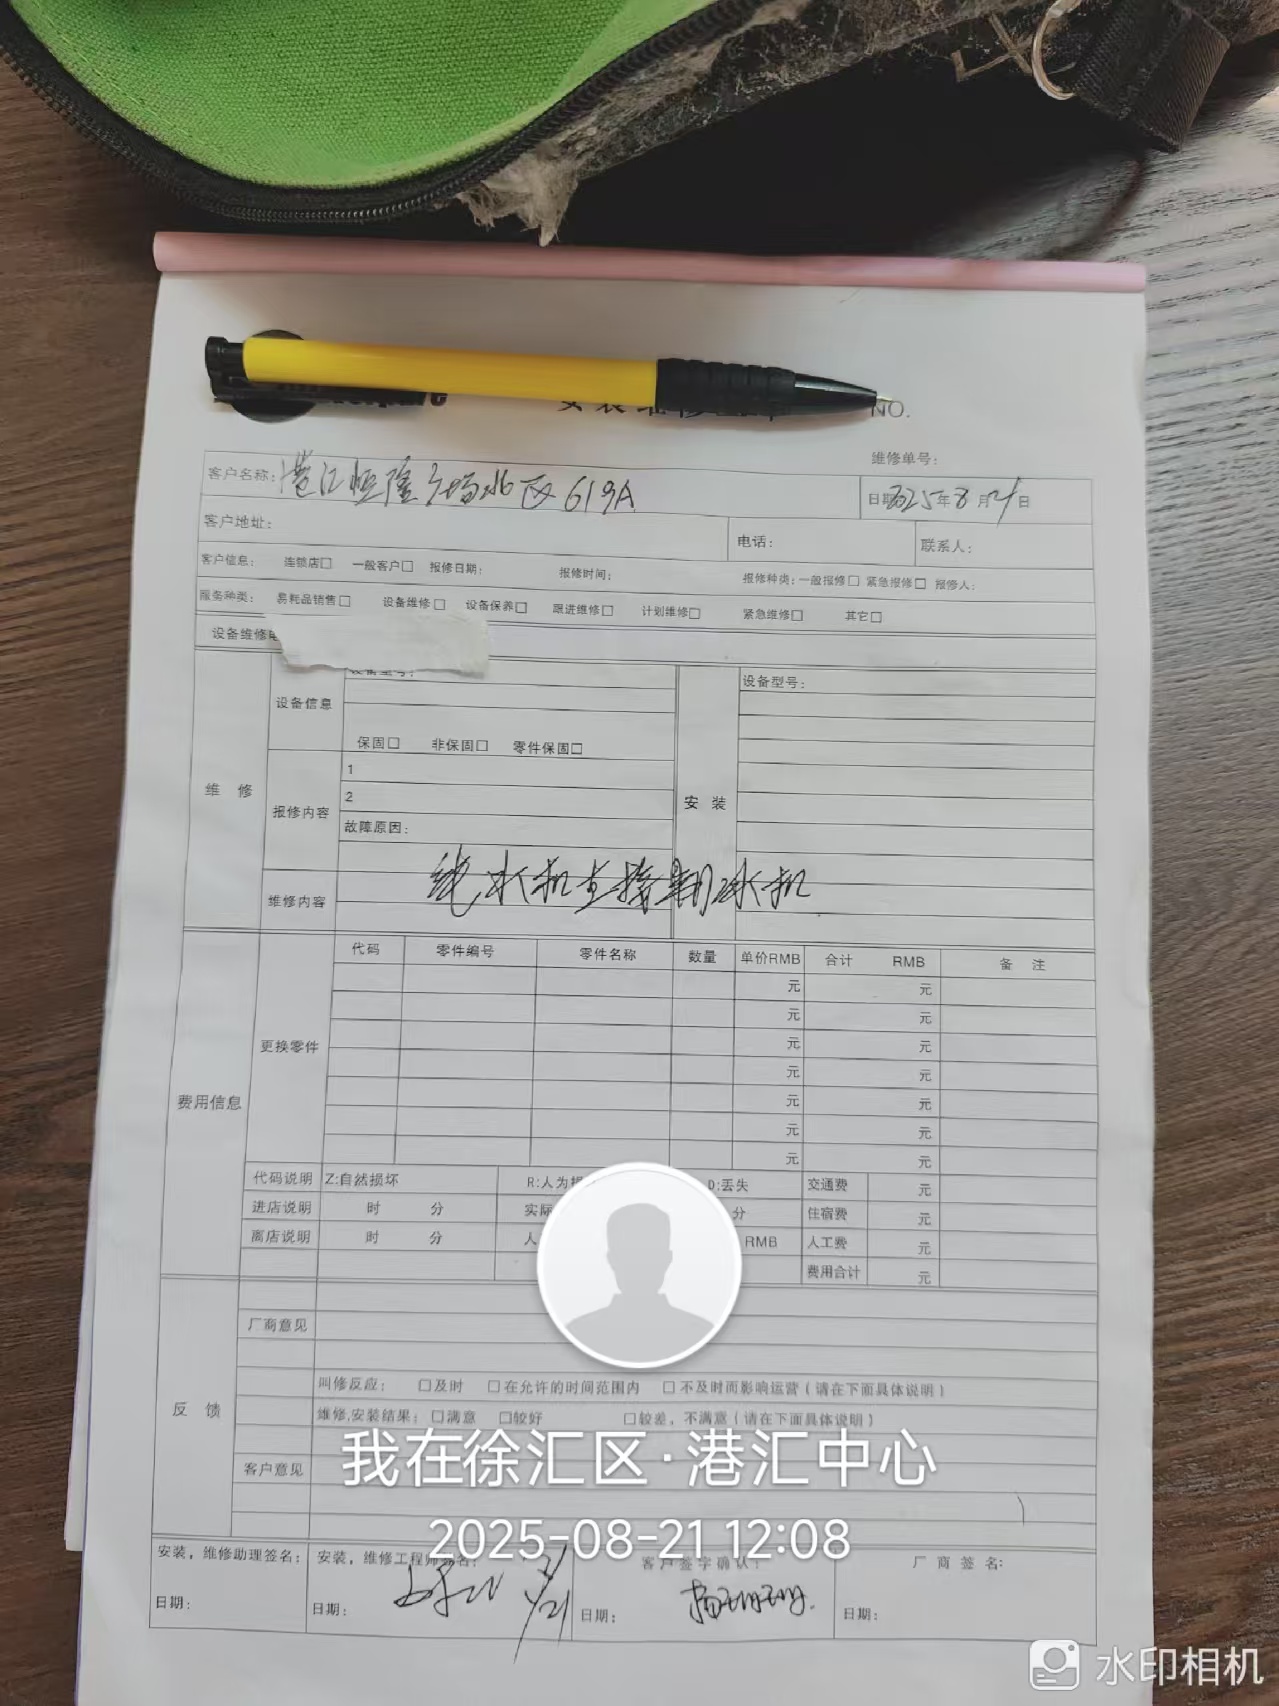 NO.
维修单号：
客户名称：港汇恒隆广场北区619A
日期2025年8月21日
客户地址：
电话：
联系人：
客户信息： 连锁店□ 一般客户□ 报修日期： 报修时间： 报修种类：一般报修□ 紧急报修□ 报修人：
服务种类： 易耗品销售□ 设备维修□ 设备保养□ 跟进维修□ 计划维修□ 紧急维修□ 其它□
设备维修
维 修
设备信息
设备型号：
保固□ 非保固□ 零件保固□
报修内容
1
2
故障原因：
维修内容
纯水机直接制冰机
安 装
设备型号：
费用信息
更换零件
代码 零件编号 零件名称 数量 单价RMB 合计 RMB 备 注
元 元
元 元
元 元
元 元
元 元
元 元
元 元
代码说明 Z:自然损坏 R:人为 D:丢失 交通费 元
进店说明 时 分 实际 分 住宿费 元
离店说明 时 分 人 RMB 人工费 元
费用合计 元
反 馈
厂商意见
叫修反应： □及时 □在允许的时间范围内 □不及时而影响运营（请在下面具体说明）
维修,安装结果： □满意 □较好 □较差，不满意（请在下面具体说明）
客户意见
我在徐汇区·港汇中心
2025-08-21 12:08
安装，维修助理签名： 安装，维修工程师签名： 客户签字确认： 厂商签名：
日期： 日期： 8/21 日期： 日期：
水印相机